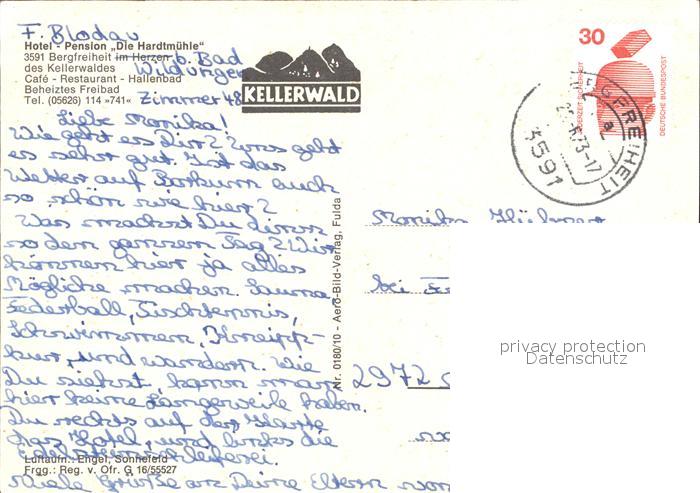 F. Blodau
Hotel - Pension „Die Hardtmühle"
3591 Bergfreiheit im Herzen b. Bad
des Kellerwaldes Wildungen
Café - Restaurant - Hallenbad
Beheiztes Freibad
Tel. (05626) 114 »741« Zimmer 48
KELLERWALD
30
JEDERZEIT SICHERHEIT
DEUTSCHE BUNDESPOST
BERGFREIHEIT
3591
Liebe Monika!
Wie geht es Dir? Uns geht
es sehr gut. Ist das
Wetter auf Borkum auch
so schön wie hier?
Was machst Du denn
so den ganzen Tag? Wir
können hier ja alles
Mögliche machen. Sauna,
Federball, Tischtennis,
Schwimmen, Kneipp-
kur, und wandern. Wie
Du siehst, kann man
hier keine Langeweile haben.
Du rechts auf der Karte
das Hotel, und links die
Edelsteinschleiferei.
Luftaufn.: Engel, Sonnefeld
Frgg.: Reg. v. Ofr. G 16/55527
Viele Grüße an Deine Eltern von
Nr. 0180/10 - Aero-Bild-Verlag, Fulda
Monika
bei
2972
privacy protection
Datenschutz